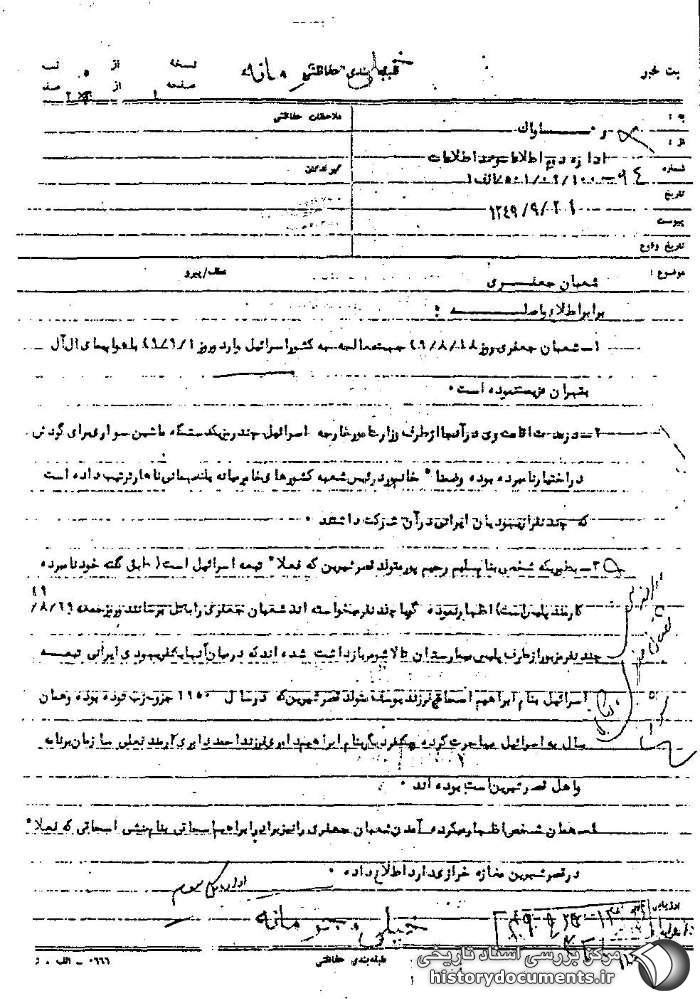 نسخه از نسـ
صفحه ۱ از صفـ
طبقه‌بندی حفاظتی خیلی محرمانه
ثبت خبر
به :
ملاحظات حفاظتی
از :
ساواک
اداره دوم اطلاعات وضد اطلاعات
شماره
گیرندگان
تاریخ
۱۳۴۹/۹/۲۱
پیوست
تاریخ وقوع
موضوع : شعبان جعفـــری
عطف/پیرو
برابر اطلاع واصلـــــه :
۱ـ شعبان جعفری روز ۴۹/۸/۱۸ جهت معالجه به کشور اسرائیل وارد وروز ۴۹/۹/۱ با هواپیمای ال آل
بتهران عزیمت نموده است .
۲ـ در مدت اقامت وی در آنجا از طرف وزارت امور خارجه اسرائیل چند روز یکدستگاه ماشین سواری برای گردش
در اختیار نامبرده بوده وضمنا" خانم پور رئیس شعبه کشورهای خاورمیانه یک مهمانی ناهار ترتیب داده است
که چند نفر از یهودیان ایرانی در آن شرکت داشتند .
۳ـ بطوریکه شخصی بنام سلیم رحیم پور متولد قصرشیرین که فعلا" تبعه اسرائیل است ( طبق گفته خود نامبرده
کارمند پلیس است ) اظهار نموده گویا چند نفر میخواسته اند شعبان جعفری را بقتل برسانند و روز جمعه ۴۹/۸/۲۹
چند نفر مزبور از طرف پلیس بیمارستان تالاشومر بازداشت شده اند که در میان آنها یکنفر یهودی ایرانی تبعـــه
اسرائیل بنام ابراهیم اسحاقی فرزند یوسف متولد قصرشیرین که در سال ۱۹۵۰ جزو حزب توده بوده وهمان
سال به اسرائیل مهاجرت کرده ویکنفر دیگر بنام ابراهیم دابری فرزند احمد دابری کارمند فعلی سازمان برنامه
واهل قصرشیرین است بوده اند .
۴ـ همان شخص اظهار میکرده آمدن شعبان جعفری را نیز برادر ابراهیم اسحاقی بنام منشی اسحاقی که فعلا"
در قصرشیرین مغازه خرازی دارد اطلاع داده .
خیلی محرمانه
طبقه‌بندی حفاظتی
۰۶۶۶ - الف - د
مرکز بررسی اسناد تاریخی
historydocuments.ir